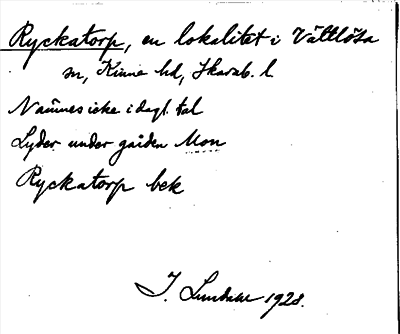 Ryckatorp, en lokalitet i Vättlösa
sn, Kinne hd, Skarab. l
Namnes icke i dagl. tal
Lyder under gården Mon
Ryckatorp bek
J. Lundahl 1928.